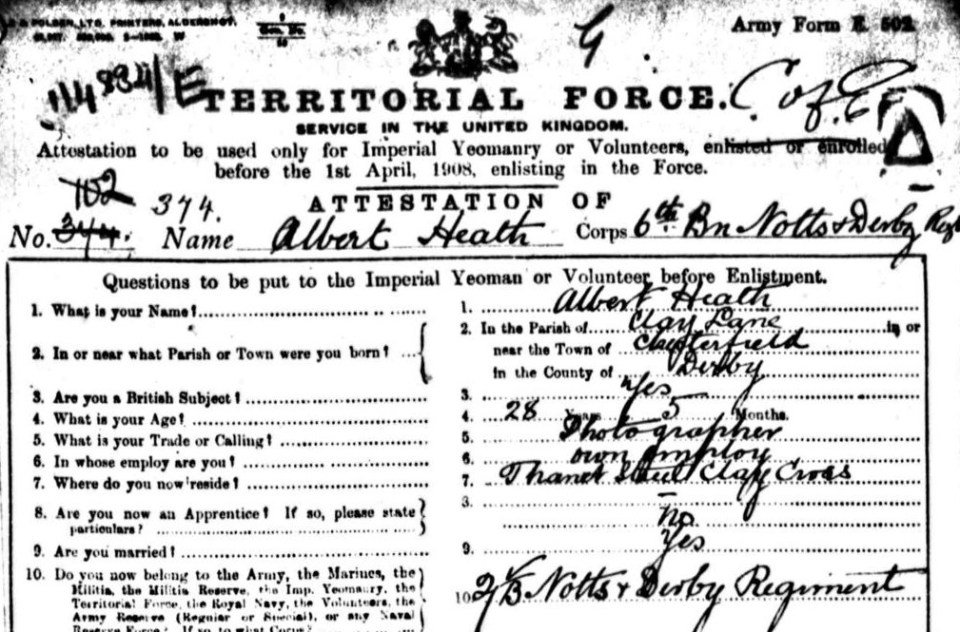 & POLDEN, LTD. PRINTERS, ALDERSHOT.
G
Army Form E. 502.
114834/E
TERRITORIAL FORCE.
C of E
SERVICE IN THE UNITED KINGDOM.
Attestation to be used only for Imperial Yeomanry or Volunteers, enlisted or enrolled
before the 1st April, 1908, enlisting in the Force.
102
374.
ATTESTATION OF
No. 344. Name Albert Heath Corps 6th Bn Notts & Derby Regt
Questions to be put to the Imperial Yeoman or Volunteer before Enlistment.
1. What is your Name? 1. Albert Heath
2. In or near what Parish or Town were you born? 2. In the Parish of Clay Lane in or
near the Town of Chesterfield
in the County of Derby
3. Are you a British Subject? 3. Yes
4. What is your Age? 4. 28 Years 5 Months.
5. What is your Trade or Calling? 5. Photographer
6. In whose employ are you? 6. own employ
7. Where do you now reside? 7. Thanet Street Clay Cross
8. Are you now an Apprentice? If so, please state
particulars? no
9. Are you married? 9. Yes
10. Do you now belong to the Army, the Marines, the
Militia, the Militia Reserve, the Imp. Yeomanry, the
Territorial Force, the Royal Navy, the Volunteers, the
Army Reserve (Regular or Special), or any Naval
Reserve Force? If so to what Corps?
10 Notts & Derby Regiment